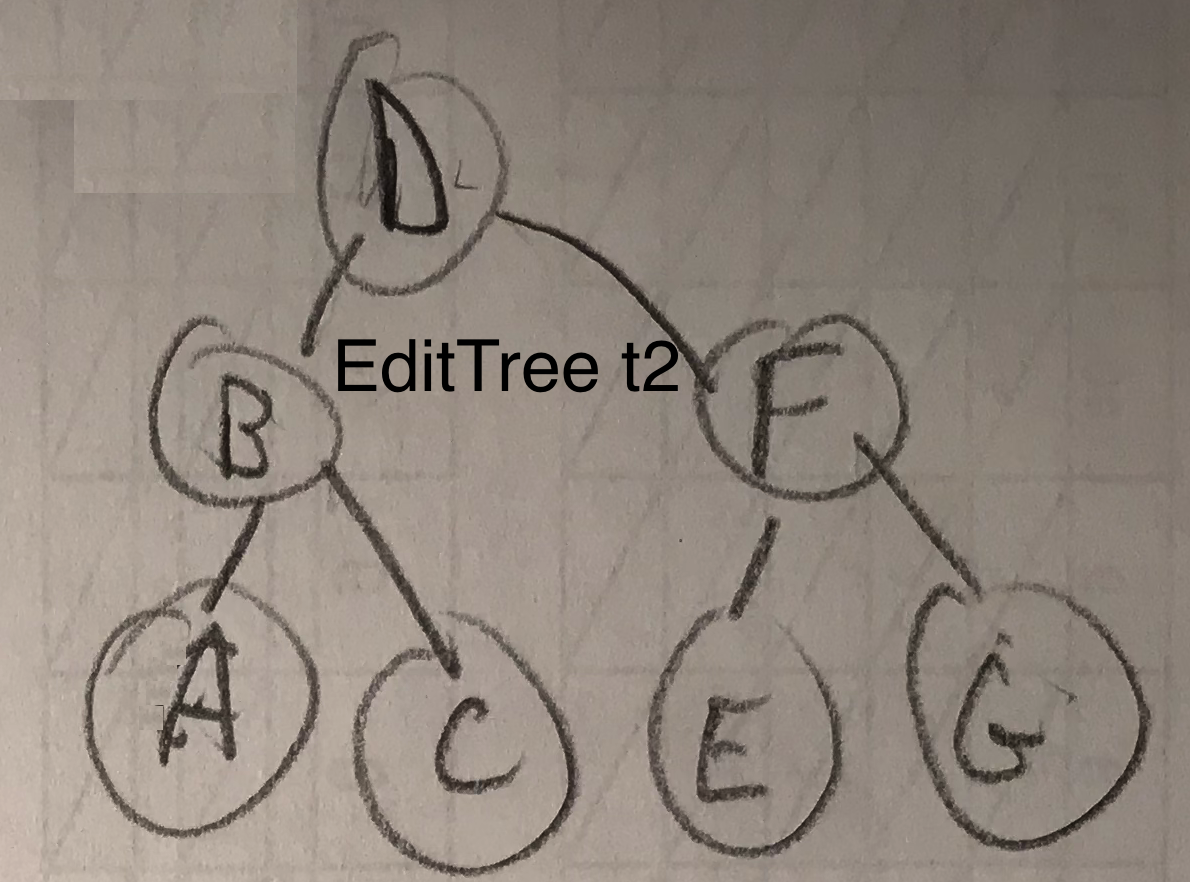 D
EditTree t2
B F
A C E G